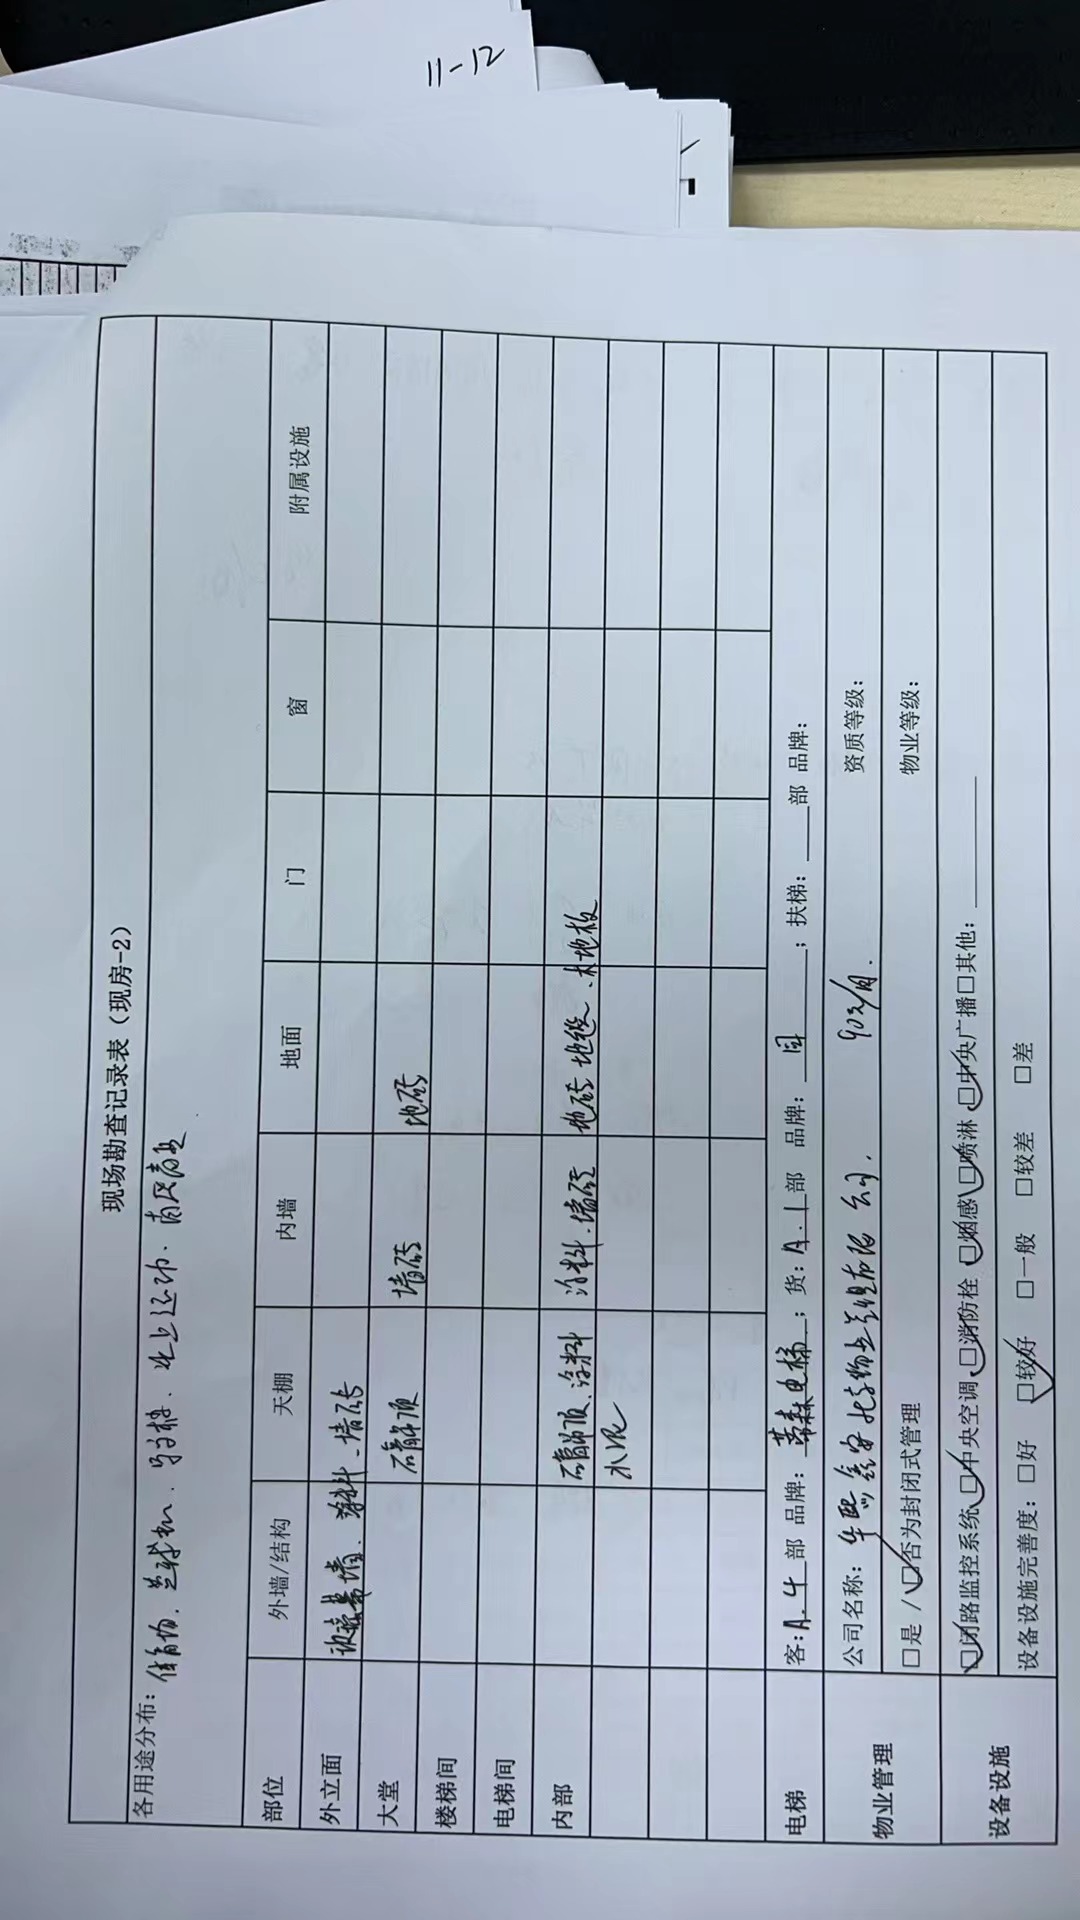 11-12
现场勘查记录表（现房-2）
各用途分布：
部位 外墙/结构 天棚 内墙 地面 门 窗 附属设施
外立面 玻璃幕墙、涂料、墙砖
大堂 吊顶 墙砖 地砖
楼梯间
电梯间
内部 吊顶、涂料 涂料、墙砖 地砖 地毯、木地板
水泥
电梯 客：A.4部 品牌：蒂森电梯；货：A.1部 品牌：同；扶梯：部 品牌：
物业管理 公司名称：华熙鑫安 物业管理有限公司. 90元/月. 资质等级：
□是/□否为封闭式管理 物业等级：
设备设施 □闭路监控系统□中央空调□消防栓□烟感□喷淋□中央广播□其他：
设备设施完善度：□好 □较好 □一般 □较差 □差